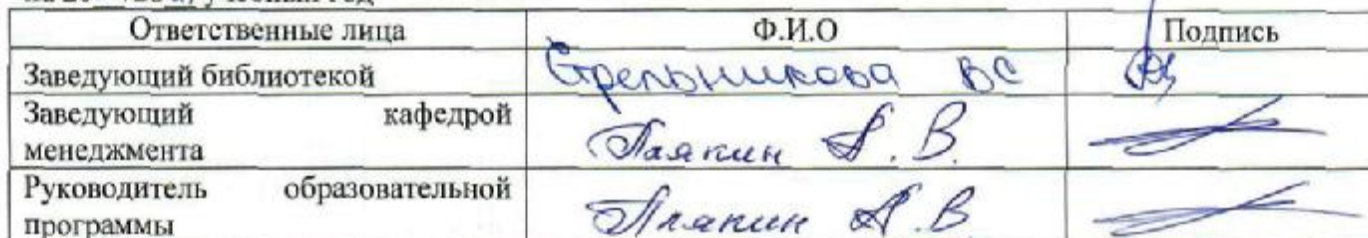 учебный год
Ответственные лица Ф.И.О Подпись
Заведующий библиотекой Стрельникова ВС
Заведующий кафедрой
менеджмента Плякин А.В.
Руководитель образовательной
программы Плякин А.В